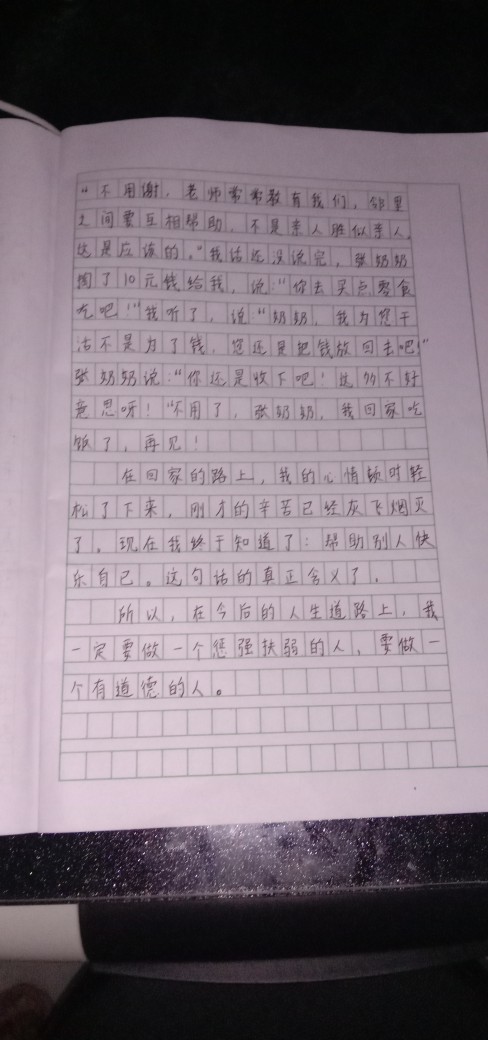 “不用谢，老师常常教育我们，邻里
之间要互相帮助，不是亲人胜似亲人，
这是应该的。”我话还没说完，张奶奶
掏了10元钱给我，说：“你去买点零食
吃吧！”我听了，说：“奶奶，我为您干
活不是为了钱，您还是把钱放回去吧！”
张奶奶说：“你还是收下吧！这多不好
意思呀！“不用了，张奶奶，我回家吃
饭了，再见！
在回家的路上，我的心情顿时轻
松了下来，刚才的辛苦已经灰飞烟灭
了。现在我终于知道了：帮助别人快
乐自己。这句话的真正含义了，
所以，在今后的人生道路上，我
一定要做一个惩强扶弱的人，要做一
个有道德的人。